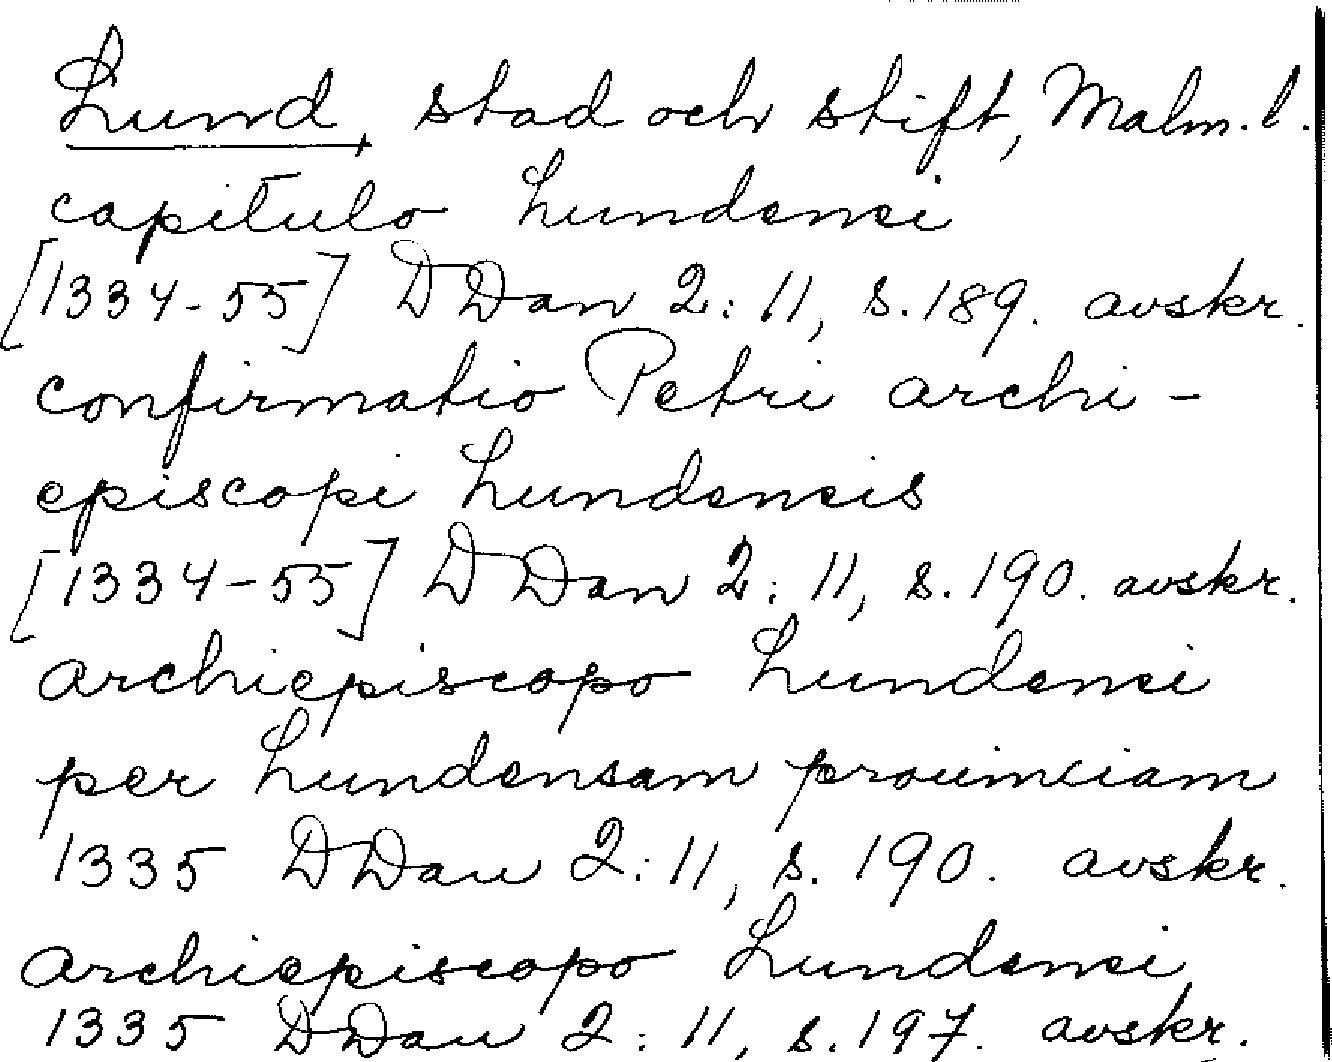 Lund, stad och stift, Malm. l.
capitulo Lundensi
[1334-55] DDan 2:11, s. 189. avskr.
confirmatio Petri archi-
episcopi Lundensis
[1334-55] DDan 2:11, s. 190. avskr.
archiepiscopo Lundensi
per Lundensam prouinciam
1335 DDan 2:11, s. 190. avskr.
archiepiscopo Lundensi
1335 DDan 2:11, s. 197. avskr.